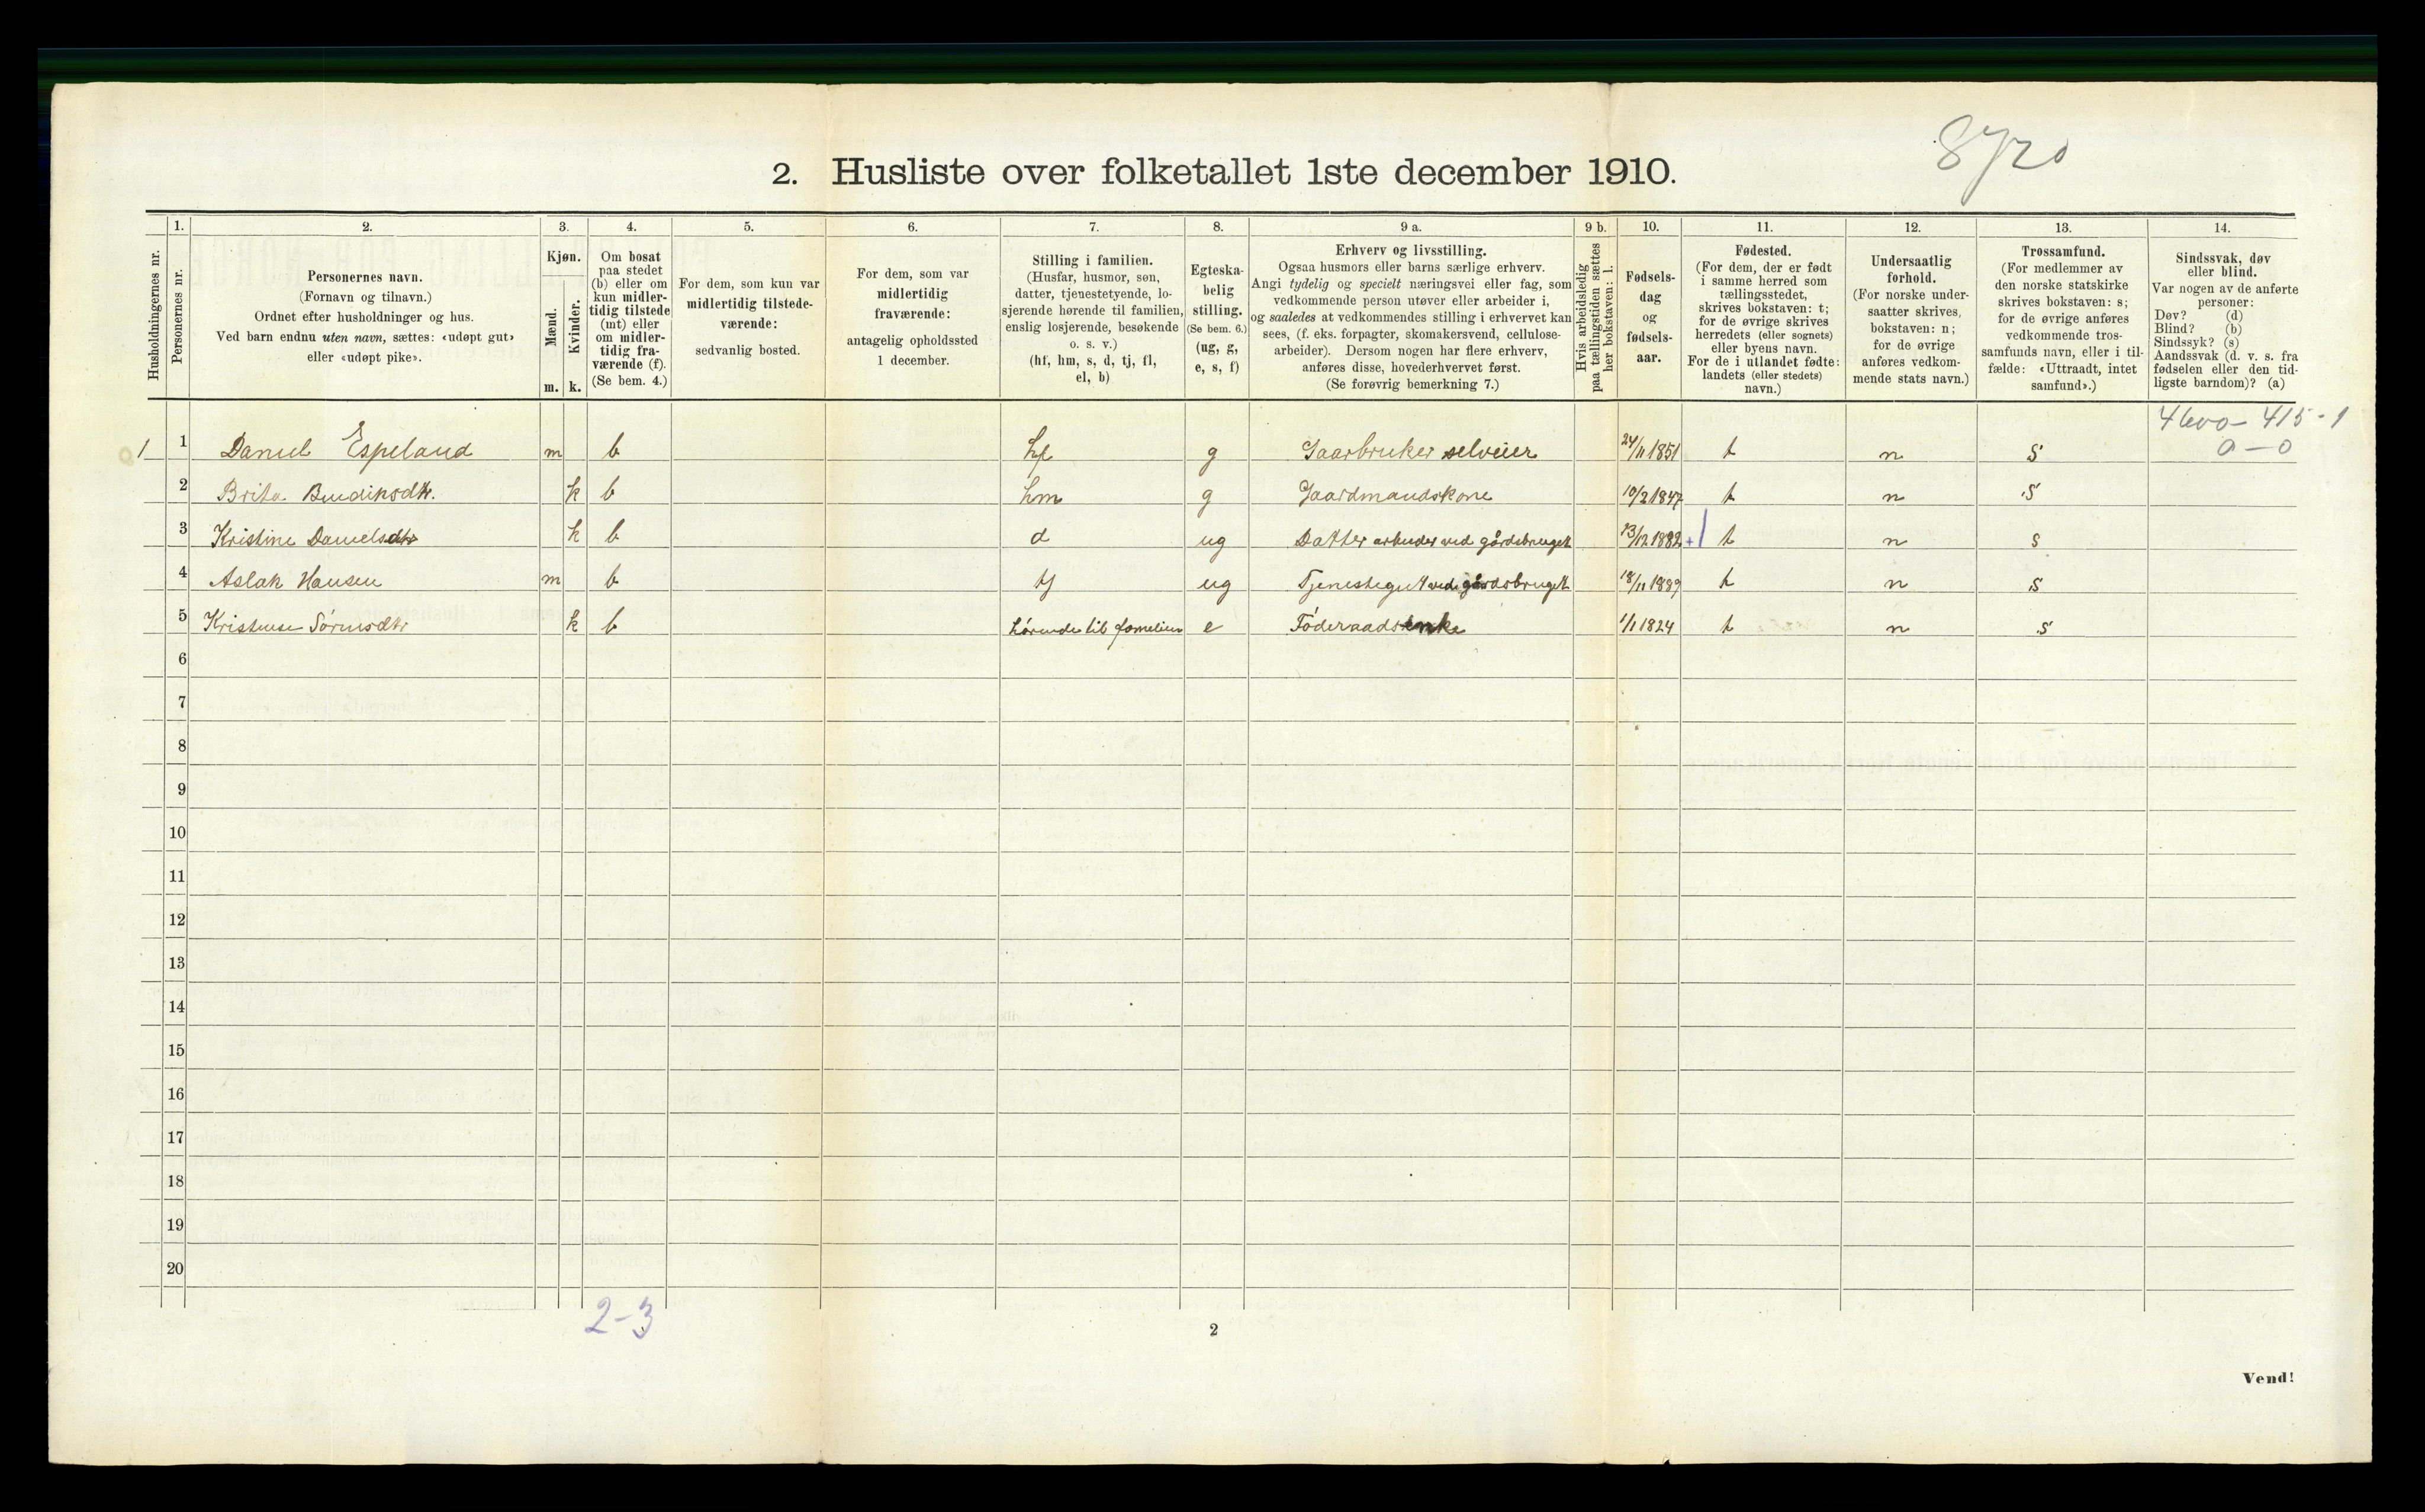 8720
2. Husliste over folketallet 1ste december 1910.
Husholdningernes nr.
1.
Personernes nr.
2.
Personernes navn.
(Fornavn og tilnavn.)
Ordnet efter husholdninger og hus.
Ved barn endnu uten navn, sættes: «udøpt gut»
eller «udøpt pike».
3.
Kjøn.
Mænd.
m.
Kvinder.
k.
4.
Om bosat
paa stedet
(b) eller om
kun midler-
tidig tilstede
(mt) eller
om midler-
tidig fra-
værende (f).
(Se bem. 4.)
5.
For dem, som kun var
midlertidig tilstede-
værende:
sedvanlig bosted.
6.
For dem, som var
midlertidig
fraværende:
antagelig opholdssted
1 december.
7.
Stilling i familien.
(Husfar, husmor, søn,
datter, tjenestetyende, lo-
sjerende hørende til familien,
enslig losjerende, besøkende
o. s. v.)
(hf, hm, s, d, tj, fl,
el, b)
8.
Egteska-
belig
stilling.
(Se bem. 6.)
(ug, g,
e, s, f)
9 a.
Erhverv og livsstilling.
Ogsaa husmors eller barns særlige erhverv.
Angi tydelig og specielt næringsvei eller fag, som
vedkommende person utøver eller arbeider i,
og saaledes at vedkommendes stilling i erhvervet kan
sees, (f. eks. forpagter, skomakersvend, cellulose-
arbeider). Dersom nogen har flere erhverv,
anføres disse, hovederhvervet først.
(Se forøvrig bemerkning 7.)
9 b.
Hvis arbeidsledig
paa tællingstiden sættes
her bokstaven: l.
10.
Fødsels-
dag
og
fødsels-
aar.
11.
Fødested.
(For dem, der er født
i samme herred som
tællingsstedet,
skrives bokstaven: t;
for de øvrige skrives
herredets (eller sognets)
eller byens navn.
For de i utlandet fødte:
landets (eller stedets)
navn.)
12.
Undersaatlig
forhold.
(For norske under-
saatter skrives,
bokstaven: n;
for de øvrige
anføres vedkom-
mende stats navn.)
13.
Trossamfund.
(For medlemmer av
den norske statskirke
skrives bokstaven: s;
for de øvrige anføres
vedkommende tros-
samfunds navn, eller i til-
fælde: «Uttraadt, intet
samfund».)
14.
Sindssvak, døv
eller blind.
Var nogen av de anførte
personer:
Døv? (d)
Blind? (b)
Sindssyk? (s)
Aandssvak (d. v. s. fra
fødselen eller den tid-
ligste barndom)? (a)
4600 - 415 - 1
0 - 0
1 1 Daniel Espeland m b hf g Gaarbruker selveier 24/11 1851 t n s
2 Brita Bendiksdtr. k b hm g Gaardmandskone 10/2 1847 t n s
3 Kristine Danielsdtr k b d ug Datter arbeider ved gårdsbruget 23/12 1882 + t n s
4 Aslak Hansen m b tj ug Tjenestegut ved gårdsbruget 18/11 1889 t n s
5 Kristense Sörensdtr k b hörende til famelien e Föderaadsenke 1/1 1824 t n s
6
7
8
9
10
11
12
13
14
15
16
17
18
19
20
2-3
2
Vend!